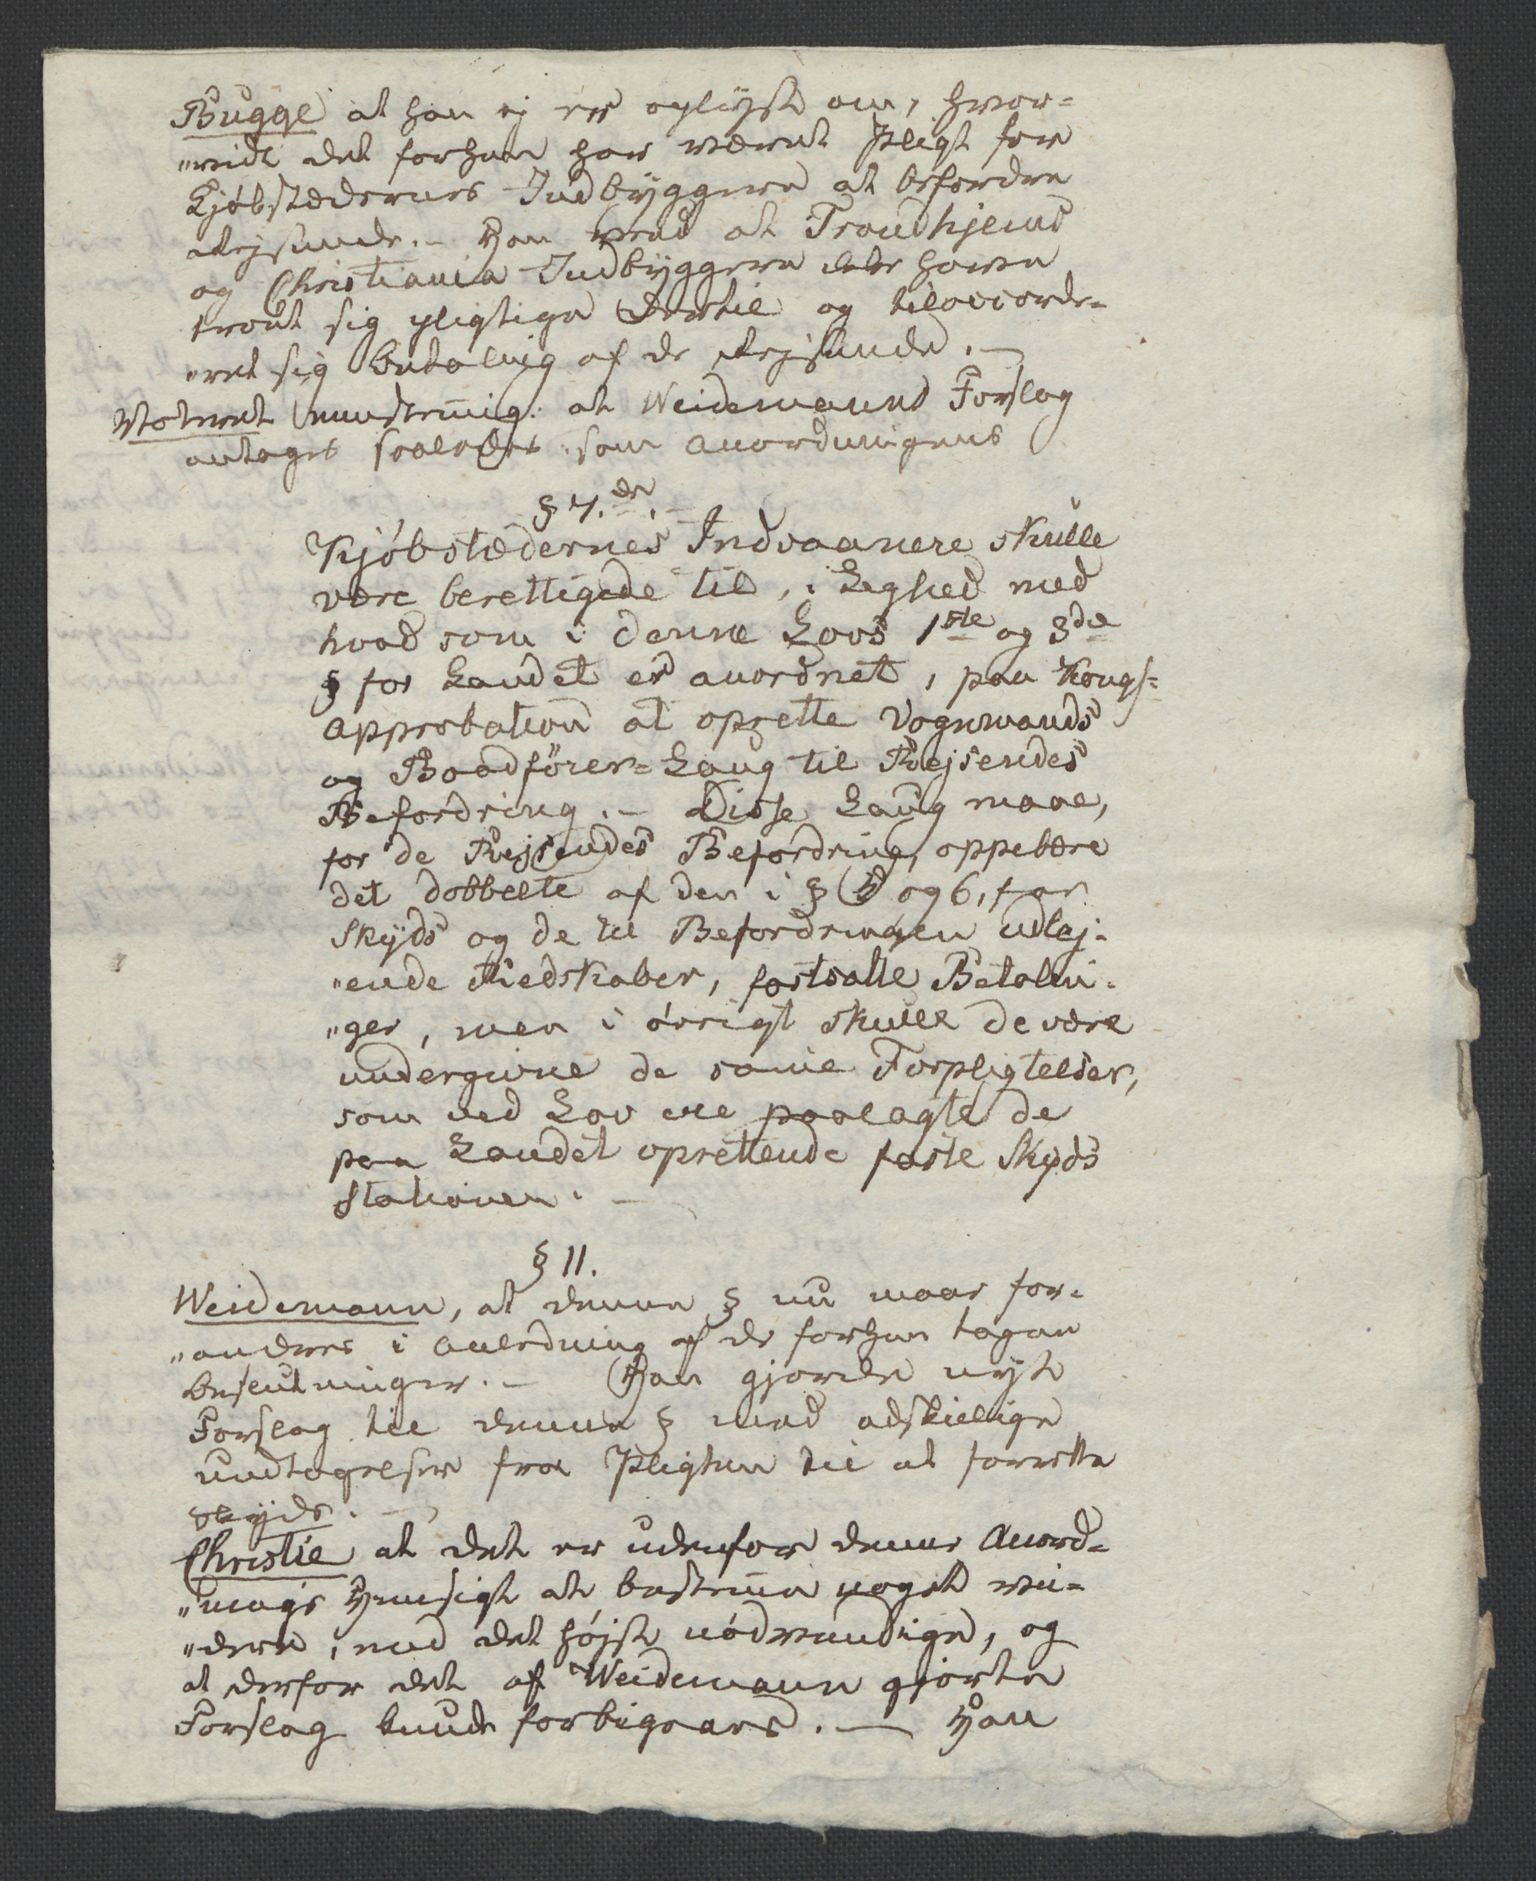 Bugge at han ej er oplyst om, hvor-
"vidt det forhen har været Pligt for
Kjøbstædernes Indbyggere at befordre
Rejsende. — Han at Trondhjems
og Christiania Indbyggere have
troet sig pligtige dertil og
"ret sig betaling af de Rejsende. —
Votteret eenstemig. at Weidemanns Forslag
antages saaledes som Anordningens
§ 7.de. —
Kjøbstædernes Indvaanere skulle
være berettigede til, i Lighed med
hvad som i denne Lovs 1ste og 3die
§ for Landet er anordnet, paa Kongl:
Approbation at oprette Vognmands
og Baadfører-Laug til Rejsendes
Befordring. — Disse Laug maae,
for de Rejsendes Befordring, oppebære
det dobbelte af den i § 5 og 6, for
Skyds og de til Befordringen udlej-
"ende Redskaber, fastsatte Betalin-
"ger, men i øvrigt skulle de være
undergivne de samme Forpligtelser,
som ved Lov ere paalagte de
paa Landet oprettende faste Skyds
Stationer. —
§ 11.
Weidemann, at denne § nu maae for-
"andres i Anledning af de forhen tagne
beslutninger. — Han gjorde nyt
Forslag til denne § med adskillige
Undtagelser fra Pligten til at forrette
Skyds. —
Christie at det er udenfor denne Anord-
"nings Hensigt at bestemme noget vi-
"dere, end det højst nødvendige, og
at derfor det af Weidemann gjorte
Forslag burde forbigaaes. — Han